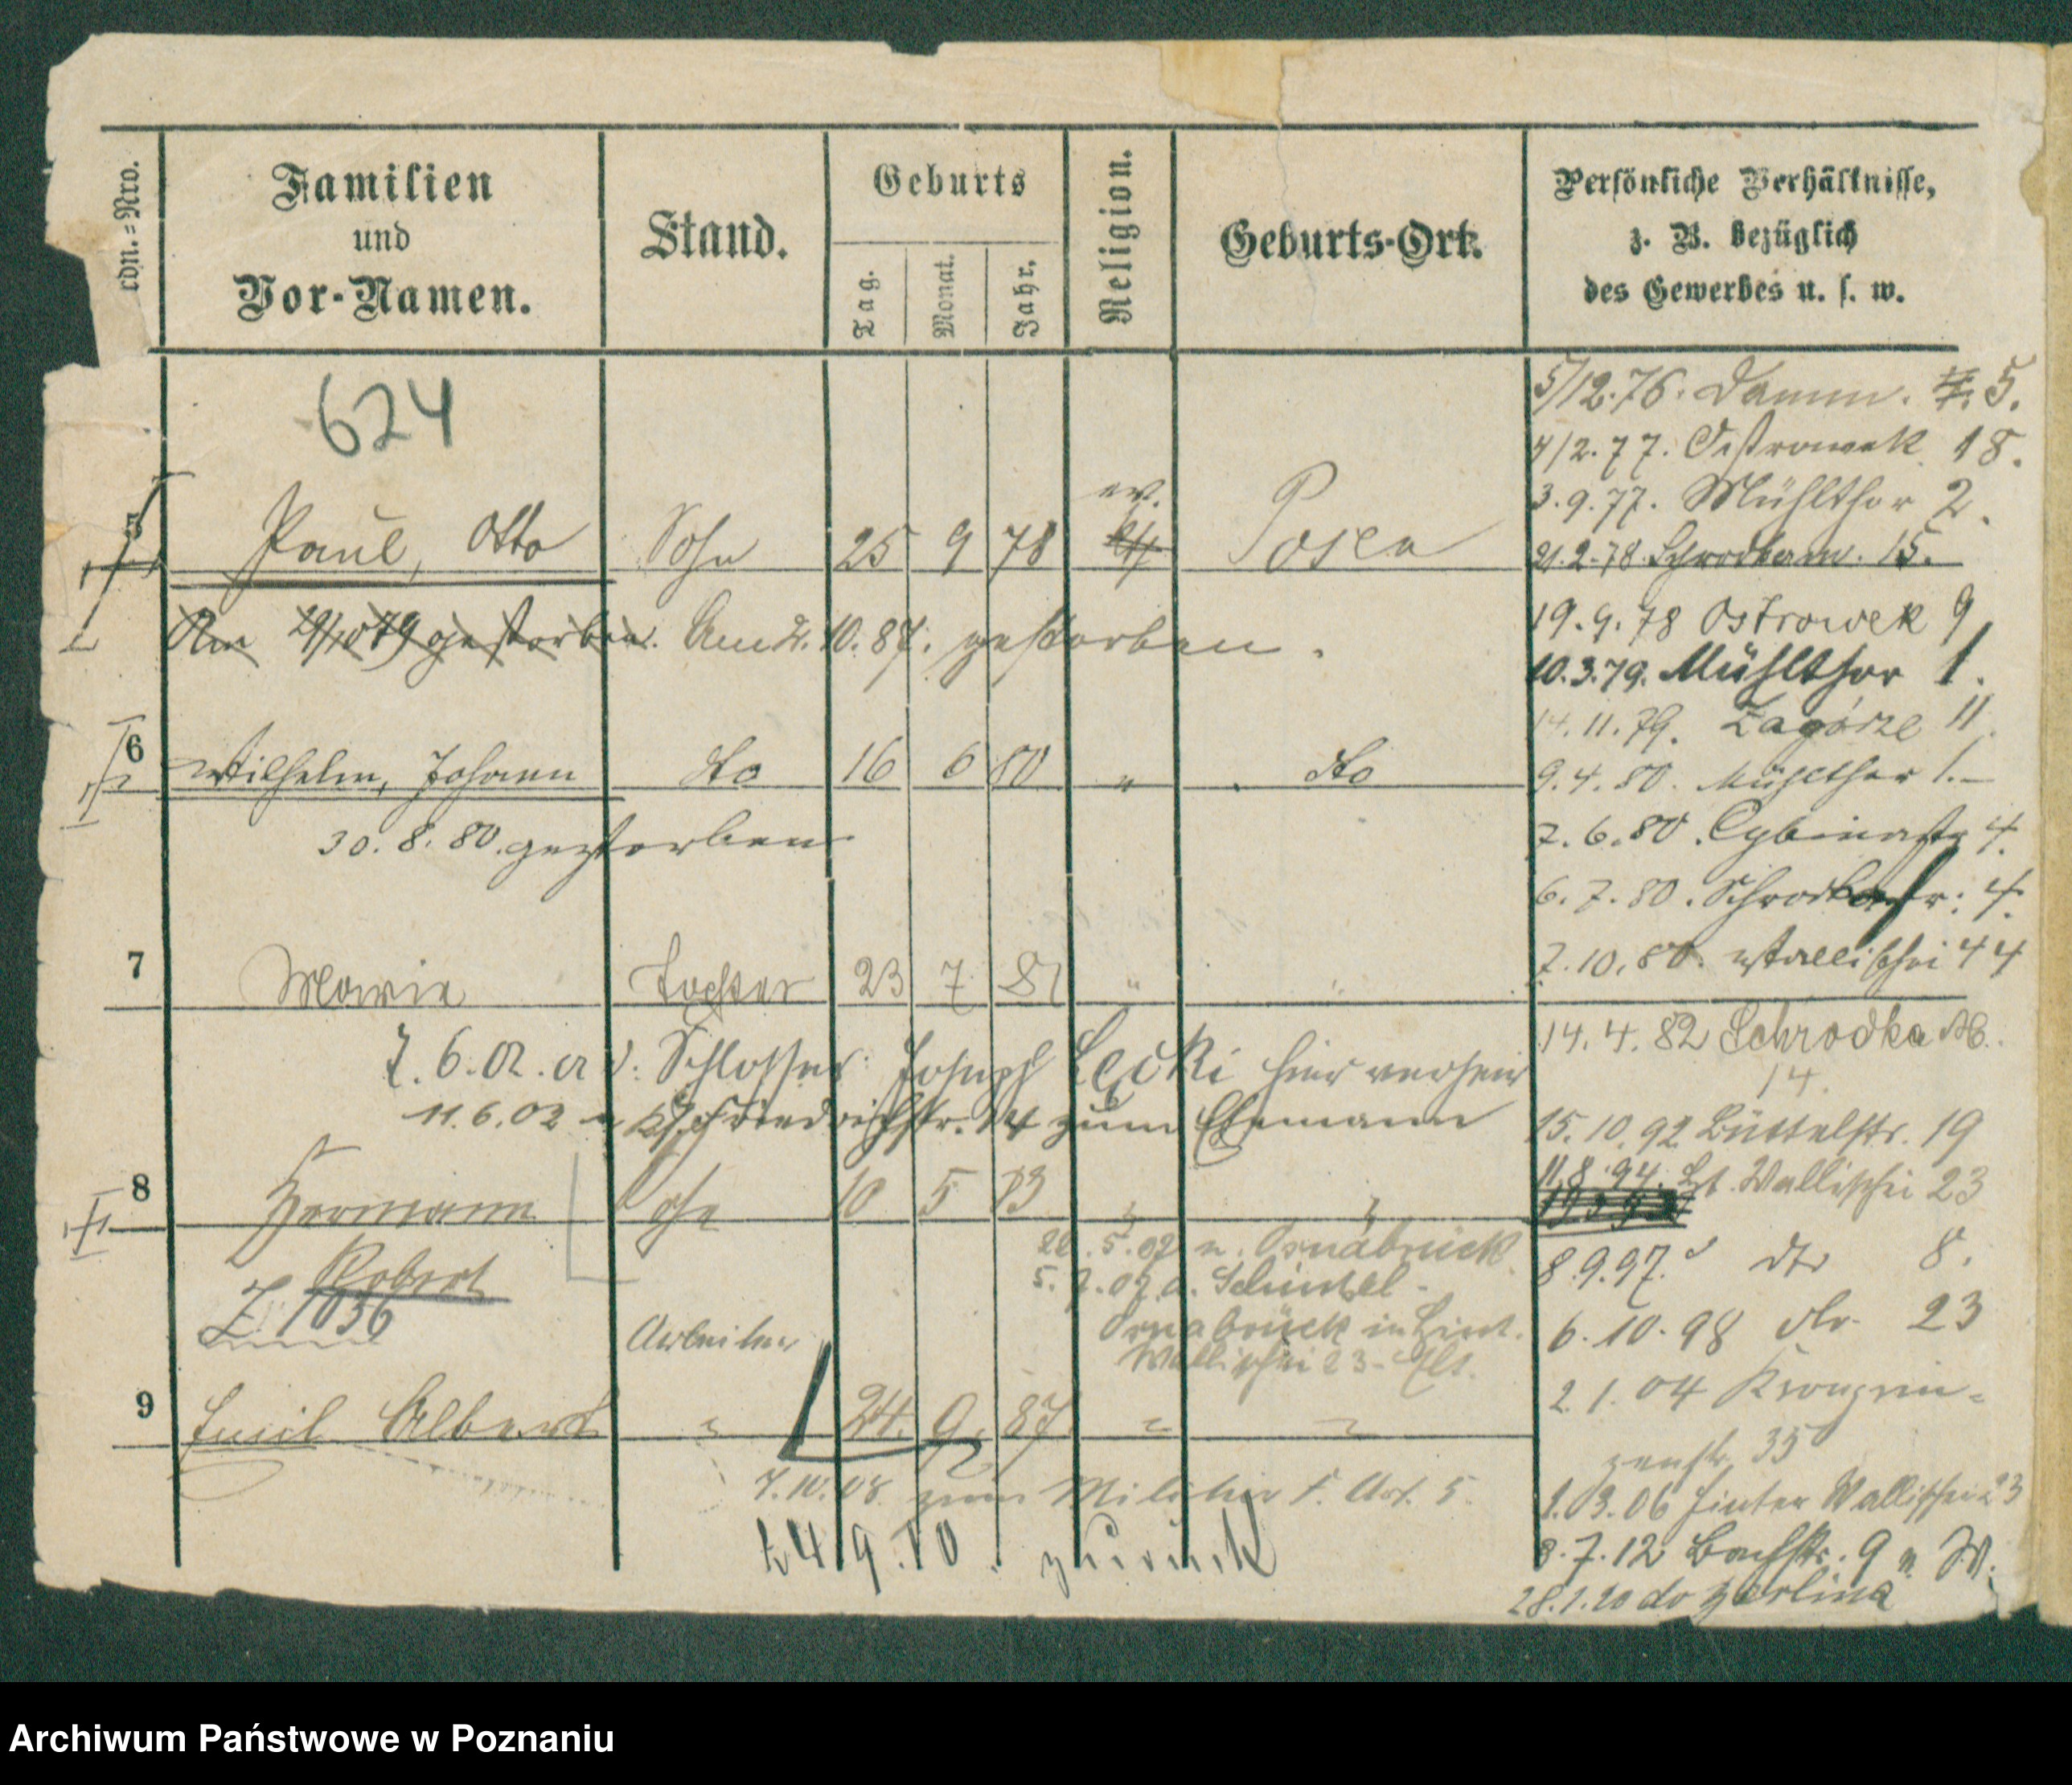 rdn.=Nro.
Familien
und
Vor-Namen.
Stand.
Geburts
Tag.
Monat.
Jahr.
Religion.
Geburts-Ort.
Persönliche Verhältnisse,
z. B. bezüglich
des Gewerbes u. s. w.
624
5 Paul, Otto Sohn 25 9 78 ev. Posen
Am 29/10 79 gestorben. Am 2. 10. 87. gestorben.
6 Wilhelm, Johann dto 16 6 80 " dto
30. 8. 80. gestorben
7 Marie Tochter 23 7 81 " "
7. 6. 02. Schlosser Joseph Lecki hier verheir
11. 6. 02 Friedrichstr. 14 zum Ehemann
8 Hermann Sohn 10 5 83 " "
Robert
Z. 1036
5. 02 n. Osnabrück
5. 7. 02 a. Schinkel -
Osnabrück
Wallischei 23
Arbeiter
9 Emil Albert " 24. 9. 87. " "
7. 10. 08 zum Militär Art. 5.
24 9. 10. zurück
5/12. 76. Damm. 5.
4/2. 77. Ostrowek 18.
3. 9. 77. Mühlthor 2.
21. 2. 78 Schrodkam. 15.
19. 9. 78 Ostrowek 9
10. 3. 79. Mühlthor 1.
14. 11. 79. Zagórze 11.
9. 4. 80. Mühlthor 1.-
7. 6. 80. Cybinastr 4.
6. 7. 80. Schrodkastr. 4.
7. 10. 80. Wallischei 44
14. 4. 82 Schrodka M.
14.
15. 10. 92 Büttelstr. 19
11. 8. 94. Wallischei 23
8. 9. 97. dto 8.
6. 10. 98 dto. 23
2. 1. 04 Kronprin=
zenstr. 35
1. 03. 06 Hinter Wallischei 23
8. 7. 12 Bachstr. 9 W.
28. 1. 20 do
Archiwum Państwowe w Poznaniu